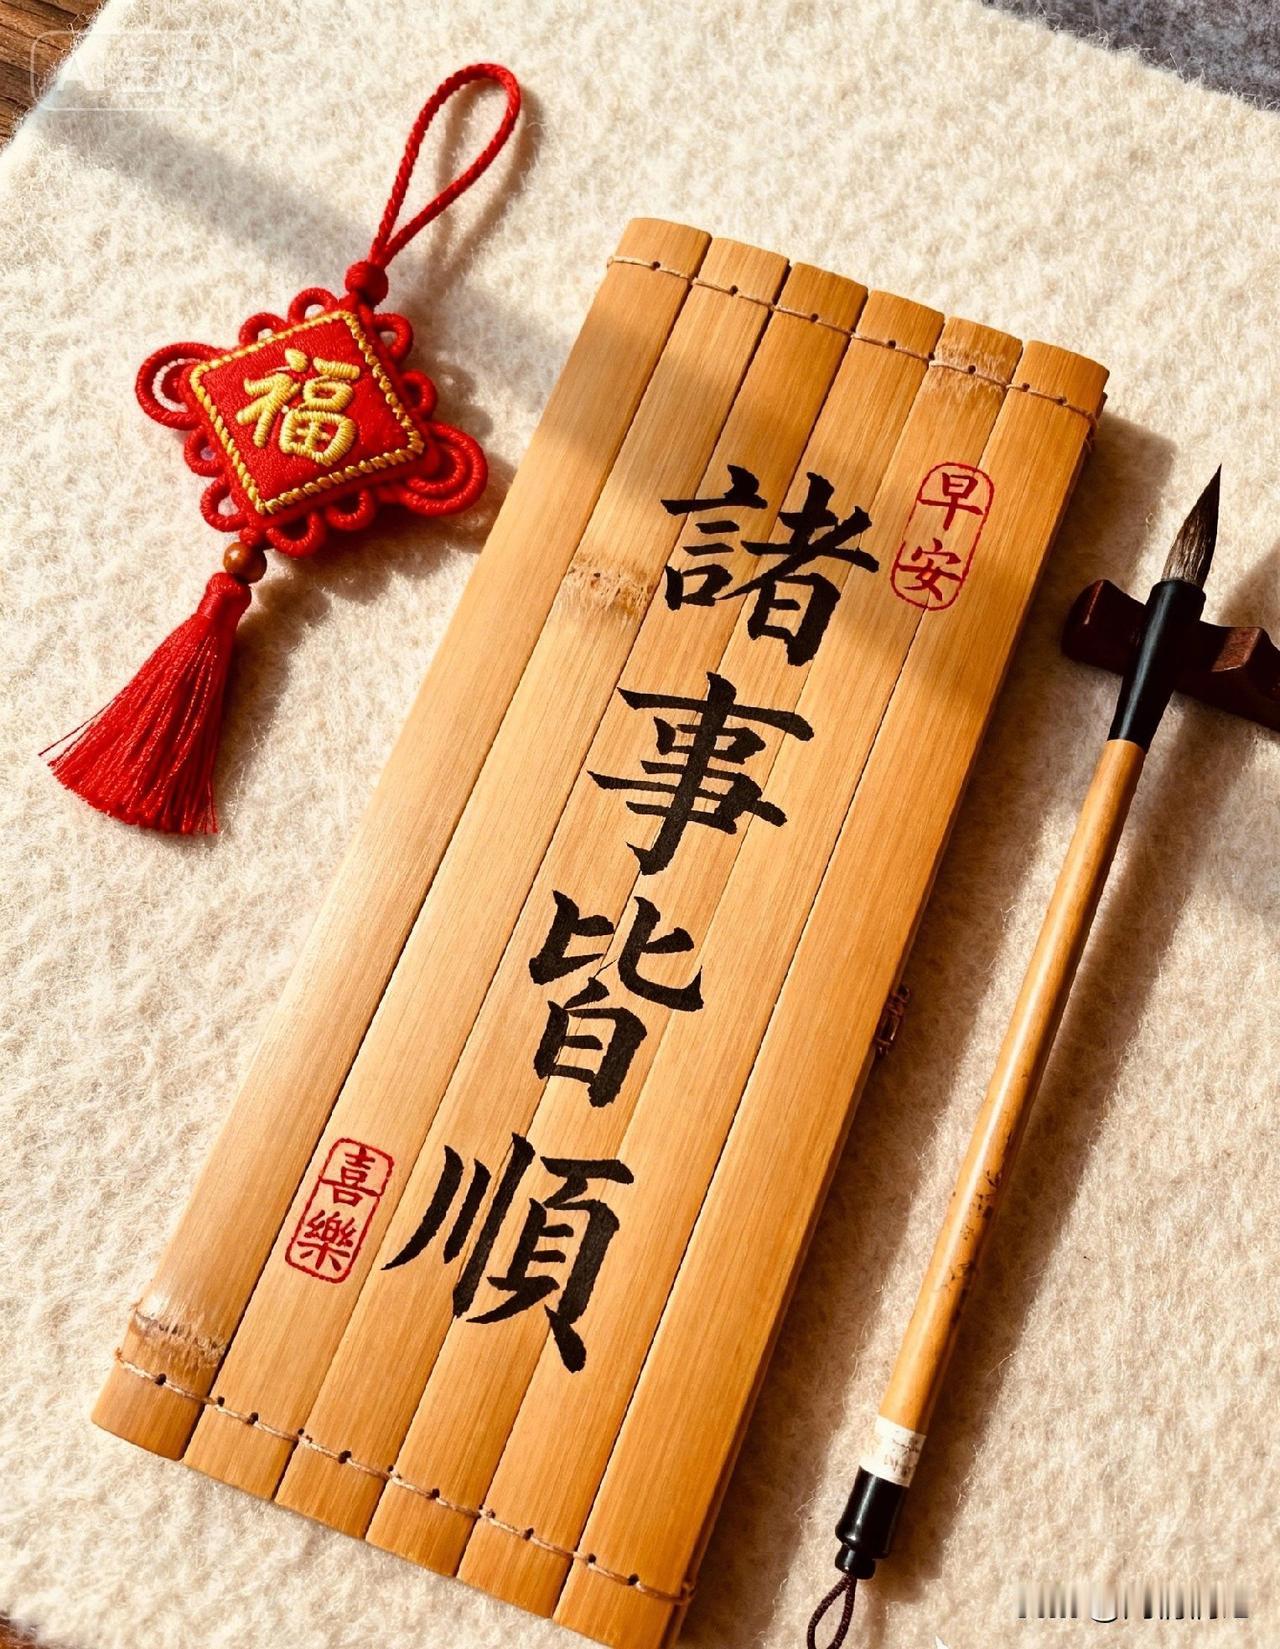 福
早安
諸事皆順
喜樂